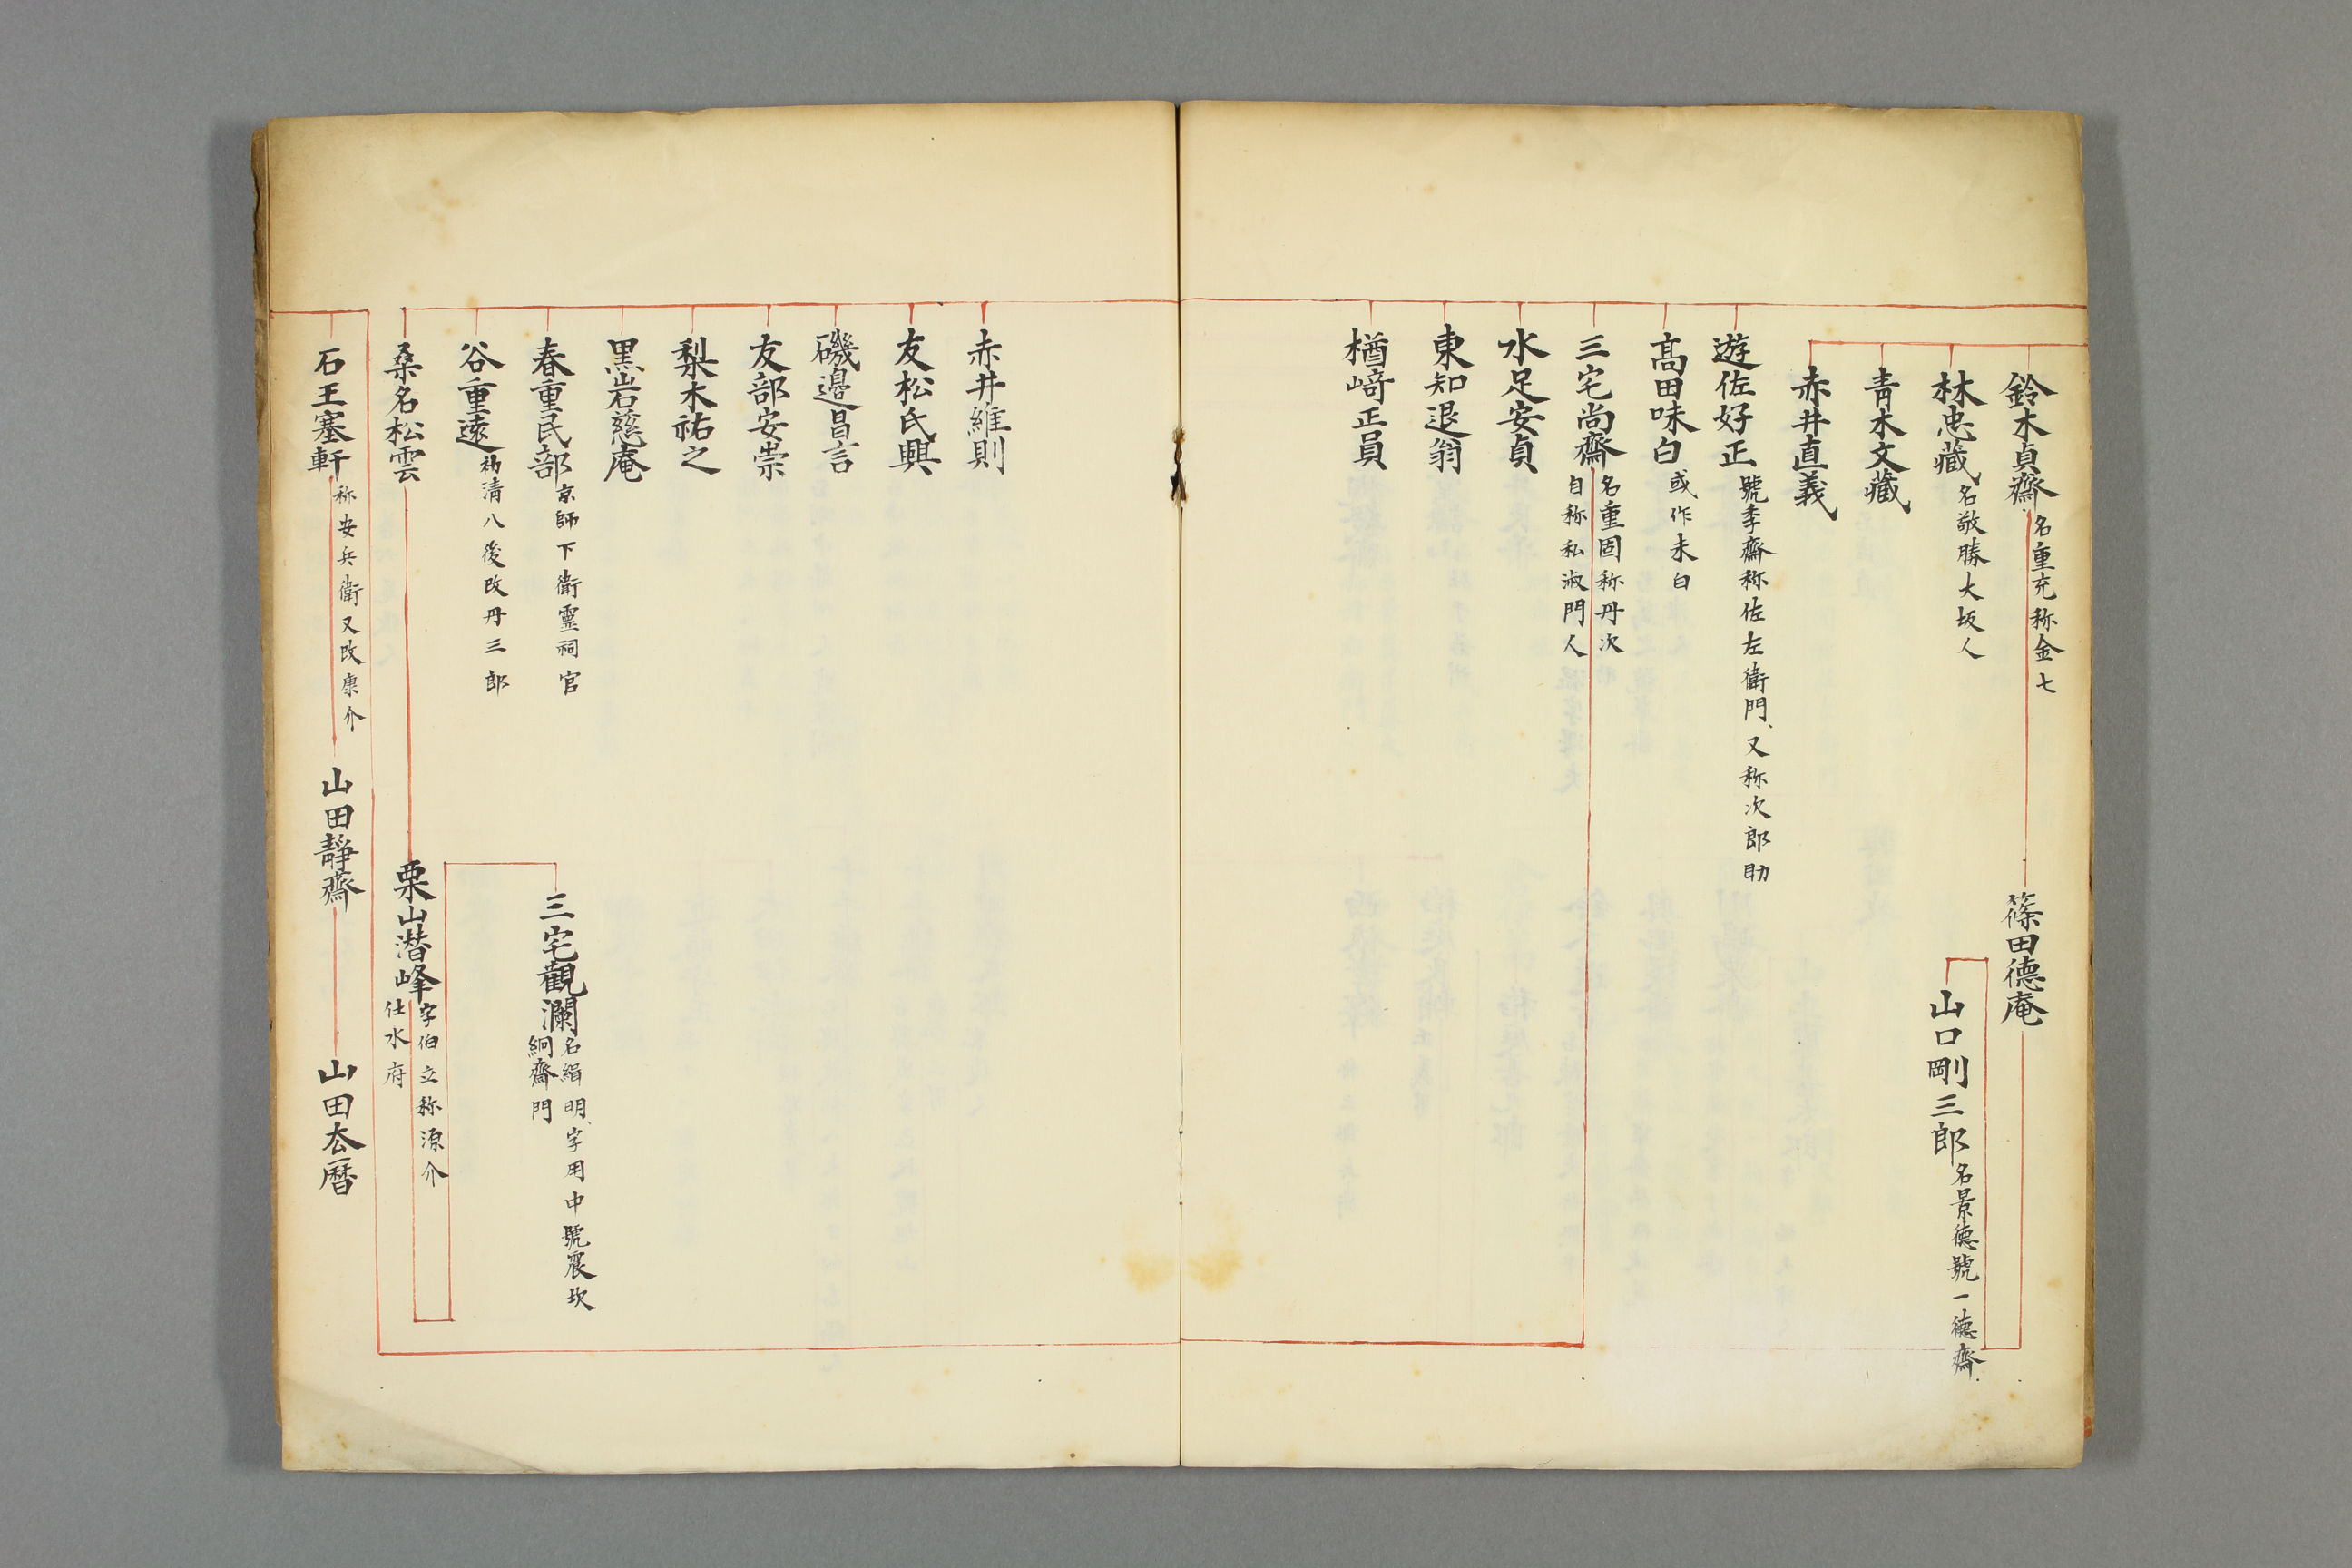 鈴木貞齋 名重充称金七
篠田德庵
山口剛三郎 名景德號一德齋
林忠藏 名敬勝大坂人
青木文藏
赤井直義
遊佐好正 號季齋称佐左衛門、又称次郎助
高田味白 或作未白
三宅尚齋 名重固称丹次
自称私淑門人
水足安貞
東知退翁
楢﨑正員
赤井維則
友松氏興
磯邊昌言
友部安崇
梨木祐之
黒岩慈庵
春重民部 京師下衛靈祠官
三宅觀瀾 名緝明、字用中號襄坎
絅齋門
谷重遠 称清八後改丹三郎
桑名松雲
栗山潜峰 字伯立称源介
仕水府
石王塞軒 称安兵衛又改康介
山田靜齋
山田杢暦